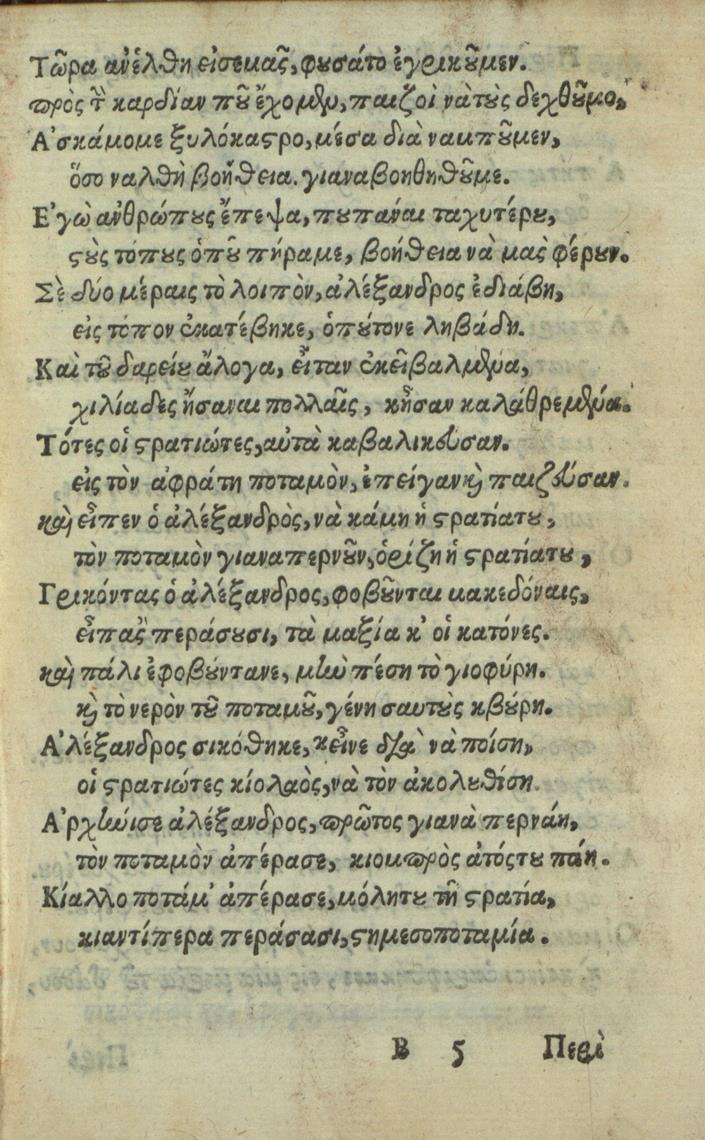 Τῶρα ἀνέλθη εἰσεμᾶς, φυσάτο ἐγρικοῦμεν.
πρὸς τὴν καρδίαν ποῦ ἔχομεν, παιζοὶ νὰ τοὺς δεχθοῦμε,
Ἀσκάμομε ξυλόκαστρο, μέσα διὰ ναμποῦμεν,
ὅσο ναλθὴ βοήθεια. γιαναβοηθηθοῦμε.
Ἐγὼ ἀνθρώπους ἔπεψα, πουπάναι ταχυτέρου,
στοὺς τόπους ὁποῦ πήραμε, βοήθεια νὰ μας φέρουν.
Σὲ δύο μέραις τὸ λοιπὸν, ἀλέξανδρος ἐδιάβη,
εἰς τόπον ἐκατέβηκε, ὁπούτονε ληβάδη.
Καὶ τοῦ δαρείου ἄλογα, εἶταν ἐκεῖ βαλμένα,
χιλίαδες ἤσαναι πολλαῖς, κῆσαν καλάθρεμένα.
Τότες οἱ στρατιώτες, αὐτὰ καβαλικοῦσαν.
εἰς τὸν ἀφράτη ποταμὸν, ἐπείγαν καὶ παιζοῦσαν.
καὶ εἶπεν ὁ ἀλέξανδρὸς, νὰ κάμη ἡ στρατίατου,
τὸν ποταμὸν γιαναπερνοῦν, ὁρίζη ἡ στρατίατου,
Γρικόντας ὁ ἀλέξανδρος, φοβοῦνται μακεδόναις,
εἶπας περάσουσι, τὰ μαξία κ' οἱ κατόνες.
καὶ πάλι ἐφοβούντανε, μὴν πέση τὸ γιοφύρη.
καὶ τὸ νερὸν τοῦ ποταμοῦ, γένη σαυτοὺς κβούρη.
Ἀλέξανδρος σικόθηκε, κεῖνε διὰ νὰ ποίση,
οἱ στρατιώτες κίολαὸς, νὰ τὸν ἀκολουθίση.
Ἀρχήνισε ἀλέξανδρος, πρῶτος γιανὰ περνάη,
τὸν ποταμὸν ἀπέρασε, κιομπρὸς ἀτόστου πάη.
Κίαλλο ποτάμ' ἀπέρασε, μόλητου τὴν στρατία,
κιαντίπερα περάσασι, στημεσοποταμία.
Β 5 Περὶ